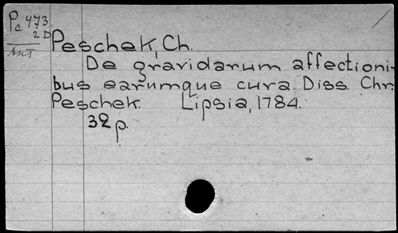 Pc 473
2D
Peschek, Ch.
De gravidarum affectioni-
bus earumque cura. Diss. Chr.
Peschek. Lipsia, 1784.
32 p.